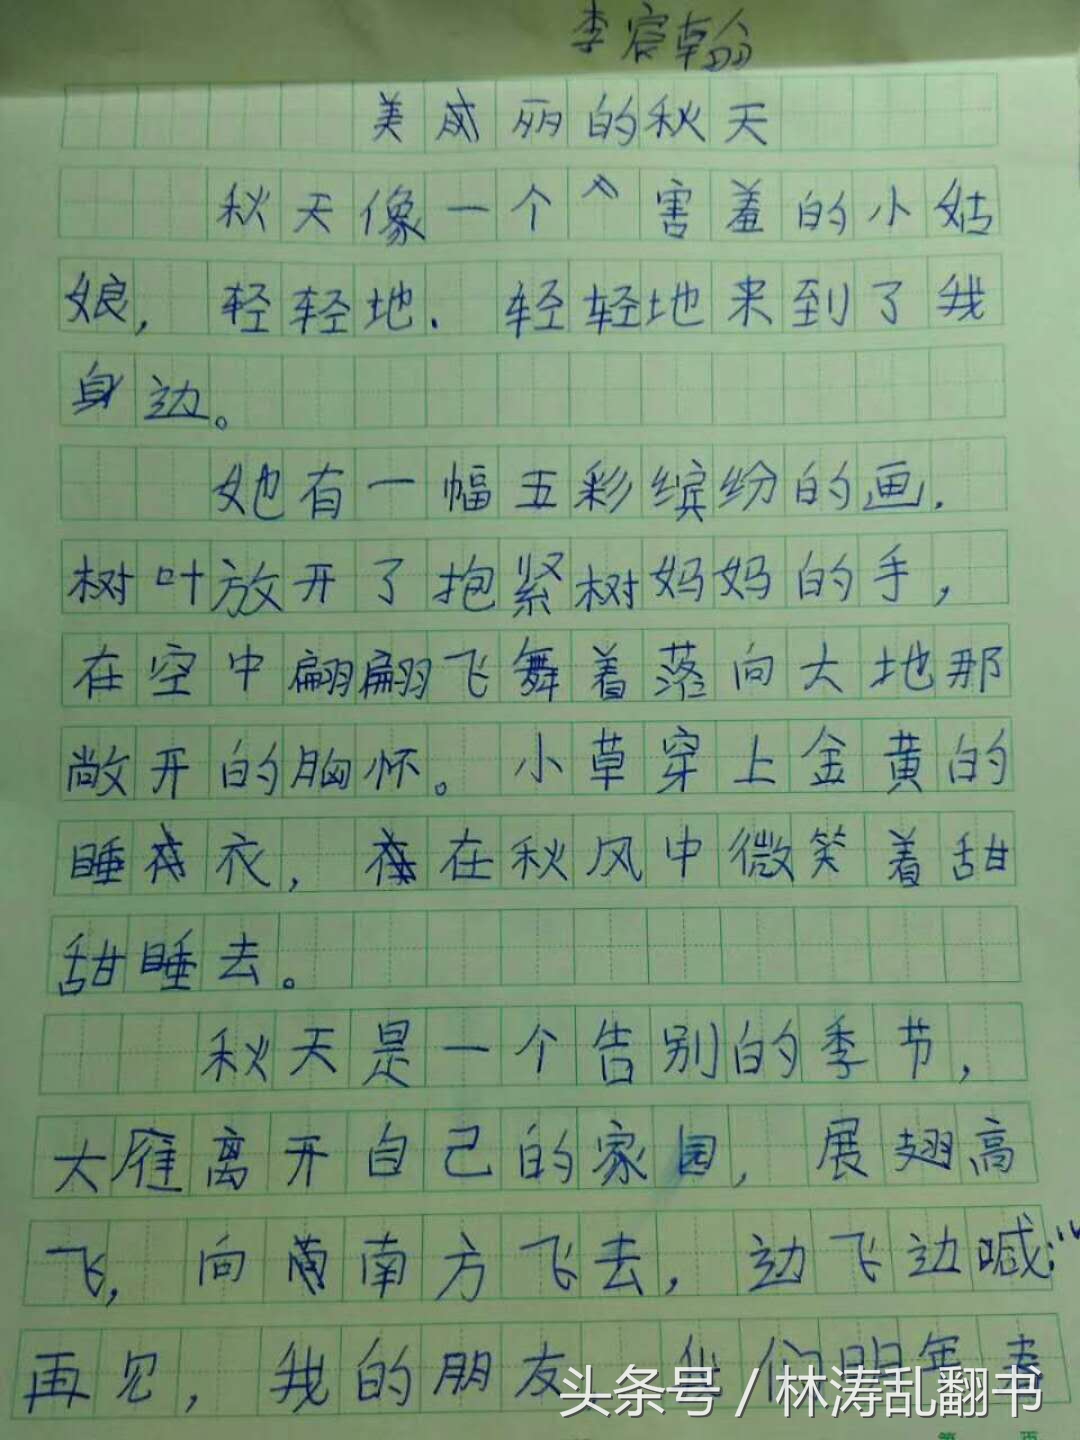 李宸翰
美丽的秋天
秋天像一个害羞的小姑
娘，轻轻地.轻轻地来到了我
身边。
她有一幅五彩缤纷的画.
树叶放开了抱紧树妈妈的手，
在空中翩翩飞舞着落向大地那
敞开的胸怀。小草穿上金黄的
睡衣，在秋风中微笑着甜
甜睡去。
秋天是一个告别的季节，
大雁离开自己的家园，展翅高
飞，向南方飞去，边飞边喊："
再见，我的朋友 们明年
头条号/林涛乱翻书
第 页